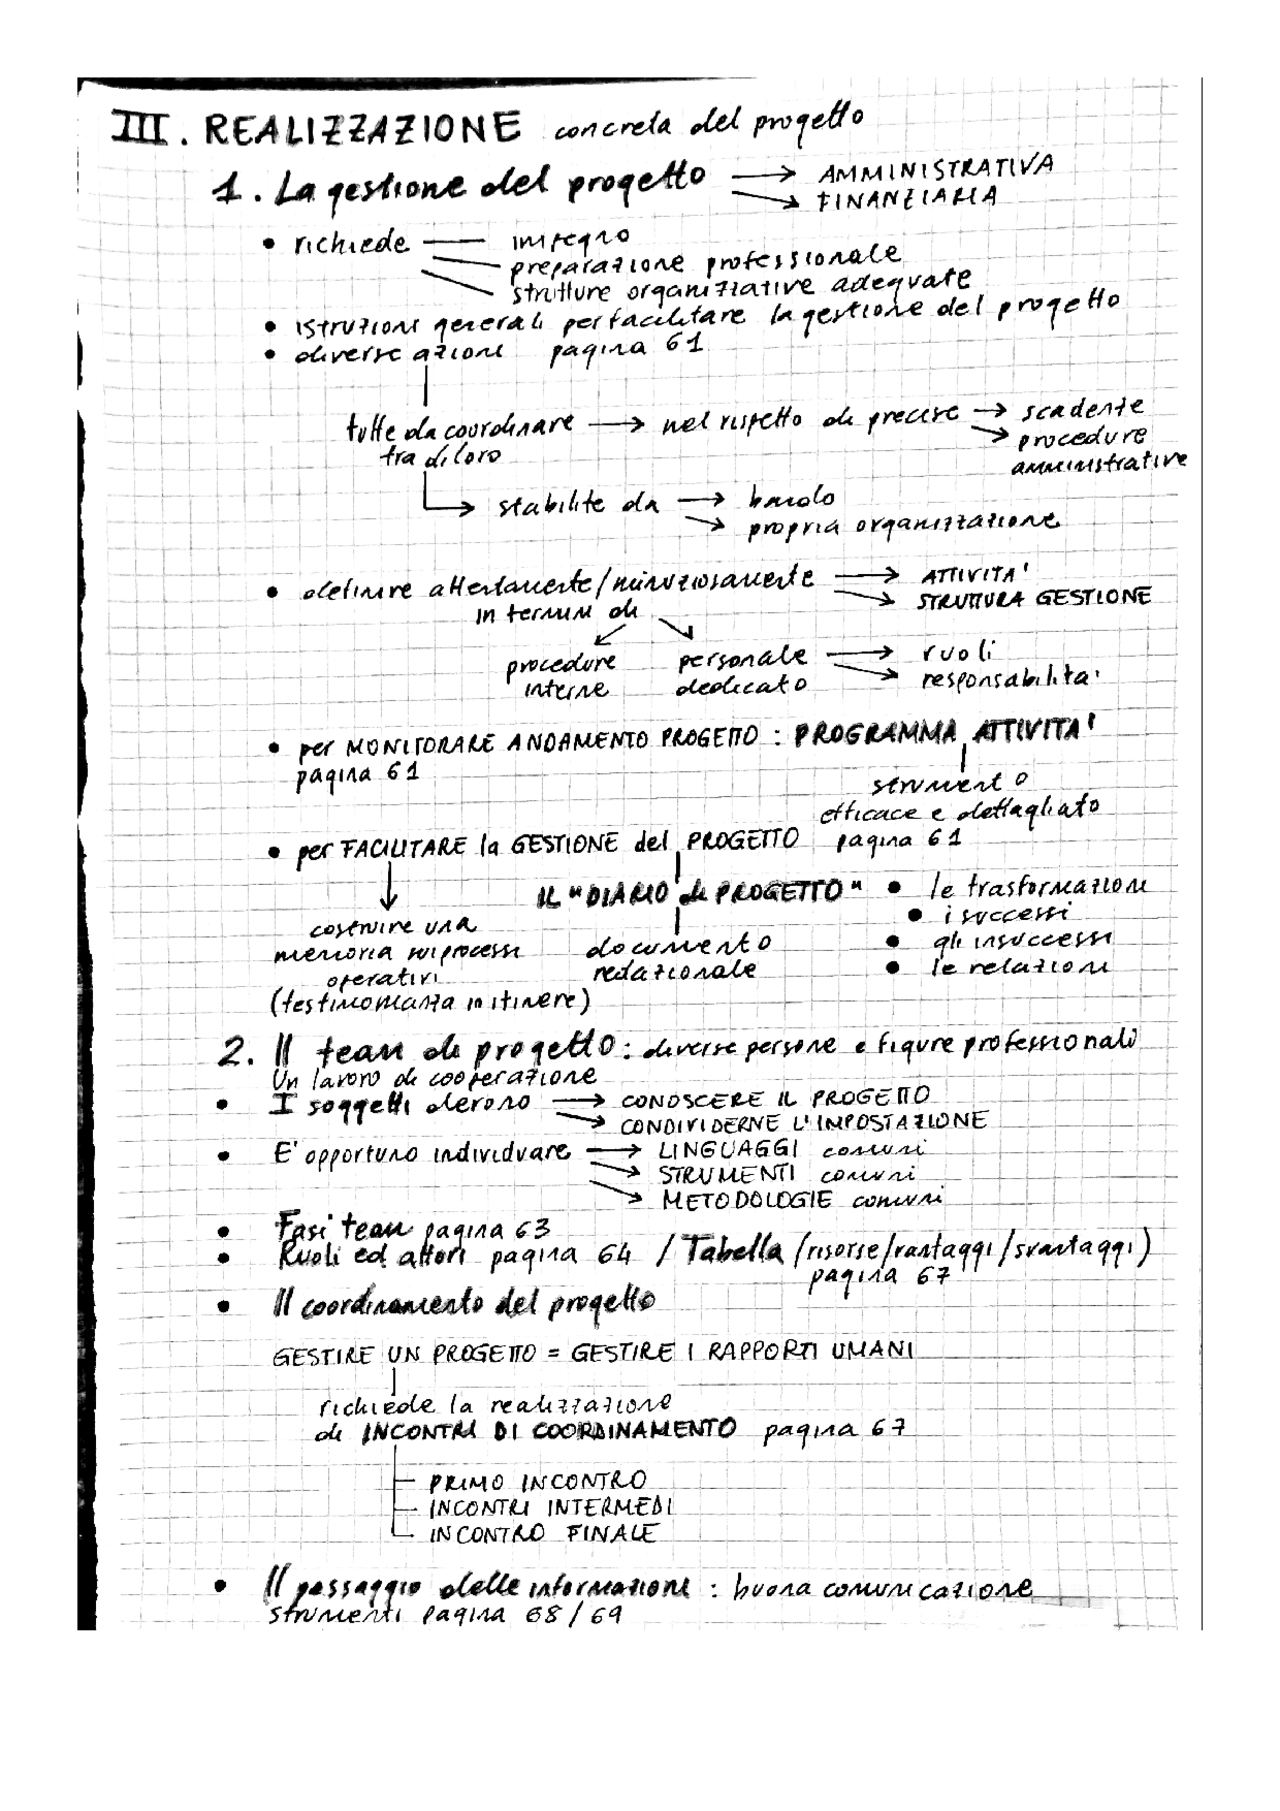 III. REALIZZAZIONE concreta del progetto
1. La gestione del progetto → AMMINISTRATIVA
→ FINANZIARIA
• richiede — impegno
preparazione professionale
strutture organizzative adeguate
• istruzioni generali per facilitare la gestione del progetto
• diverse azioni pagina 61
tutte da coordinare → nel rispetto di precise → scadenze
tra di loro → procedure
amministrative
→ stabilite da → bando
→ propria organizzazione
• definire attentamente/minuziosamente → ATTIVITA'
in termini di → STRUTTURA GESTIONE
procedure personale → ruoli
interne dedicato → responsabilita'
• per MONITORARE ANDAMENTO PROGETTO : PROGRAMMA ATTIVITA'
pagina 61
strumento
efficace e dettagliato
• per FACILITARE la GESTIONE del PROGETTO pagina 61
↓ IL "DIARIO di PROGETTO" • le trasformazioni
costruire una • i successi
memoria sui processi documento • gli insuccessi
operativi redazionale • le relazioni
(testimonianza in itinere)
2. Il team di progetto : diverse persone e figure professionali
Un lavoro di cooperazione
• I soggetti devono → CONOSCERE IL PROGETTO
→ CONDIVIDERNE L'IMPOSTAZIONE
• E' opportuno individuare → LINGUAGGI comuni
→ STRUMENTI comuni
→ METODOLOGIE comuni
• Fasi team pagina 63
• Ruoli ed attori pagina 64 / Tabella (risorse/vantaggi/svantaggi)
pagina 67
• Il coordinamento del progetto
GESTIRE UN PROGETTO = GESTIRE I RAPPORTI UMANI
richiede la realizzazione
di INCONTRI DI COORDINAMENTO pagina 67
PRIMO INCONTRO
INCONTRI INTERMEDI
INCONTRO FINALE
• Il passaggio delle informazioni : buona comunicazione
strumenti pagina 68/69